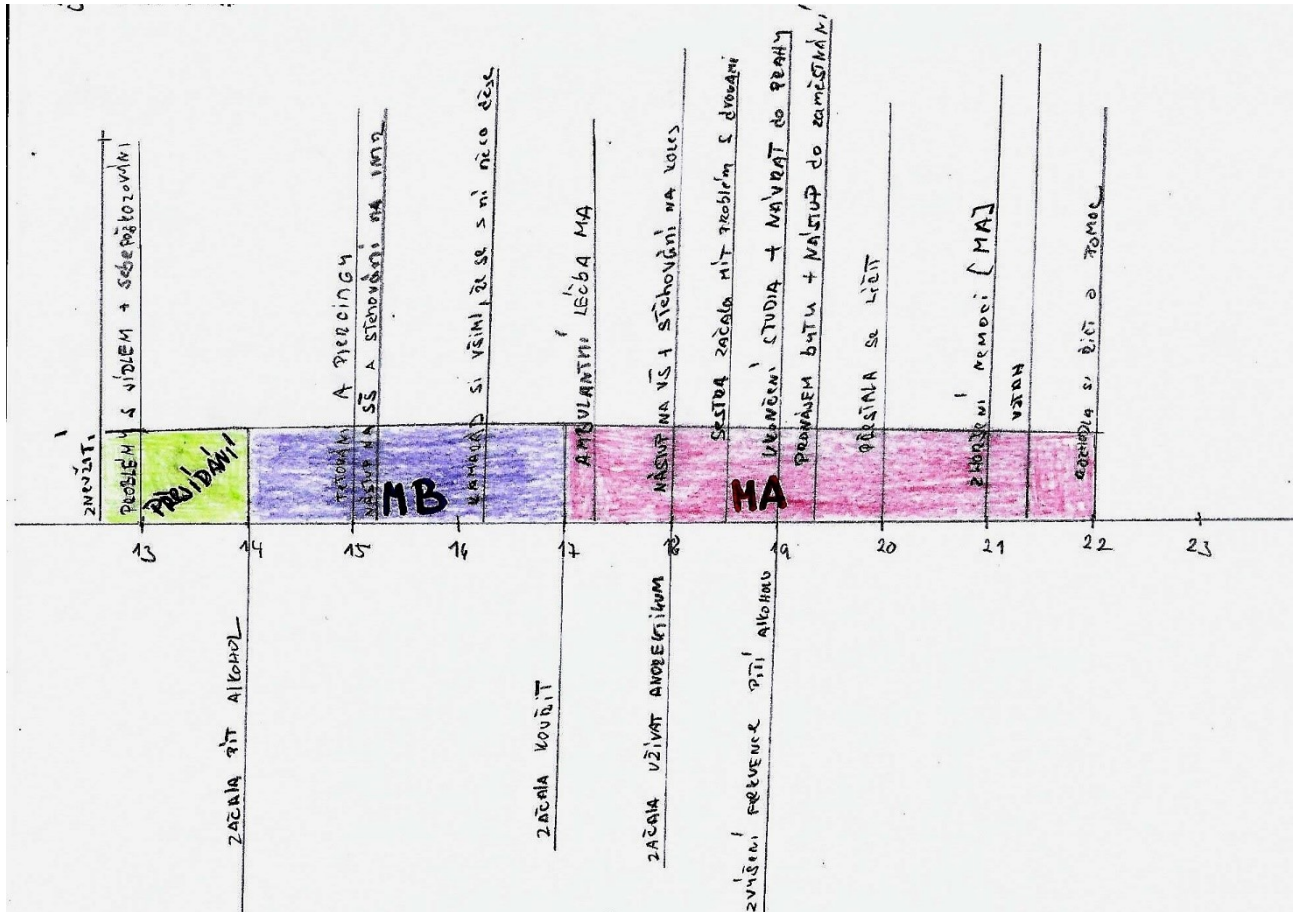 ZNEUŽITÍ
PROBLÉMY S JÍDLEM + SEBEPOŠKOZOVÁNÍ
PŘEJÍDÁNÍ
TETOVÁNÍ A PIERCINGY
NÁSTUP NA SŠ A STĚHOVÁNÍ NA INTR
KAMARÁD SI VŠIML, ŽE SE S NÍ NĚCO DĚJE
MB
AMBULANTNÍ LÉČBA MA
NÁSTUP NA VŠ + STĚHOVÁNÍ NA KOLEJ
SESTRA ZAČALA MÍT PROBLÉM S DROGAMI
MA
UKONČENÍ STUDIA + NÁVRAT DO PRAHY
PRONÁJEM BYTU + NÁSTUP DO ZAMĚSTNÁNÍ
PŘESTALA SE LÉČIT
ZHORŠENÍ NEMOCI [MA]
VZTAH
ROZHODLA SI ŘÍCT O POMOC
13 14 15 16 17 18 19 20 21 22 23
ZAČALA PÍT ALKOHOL
ZAČALA KOUŘIT
ZAČALA UŽÍVAT ANOREKTIKUM
ZVÝŠENÍ FREKVENCE PITÍ ALKOHOLU